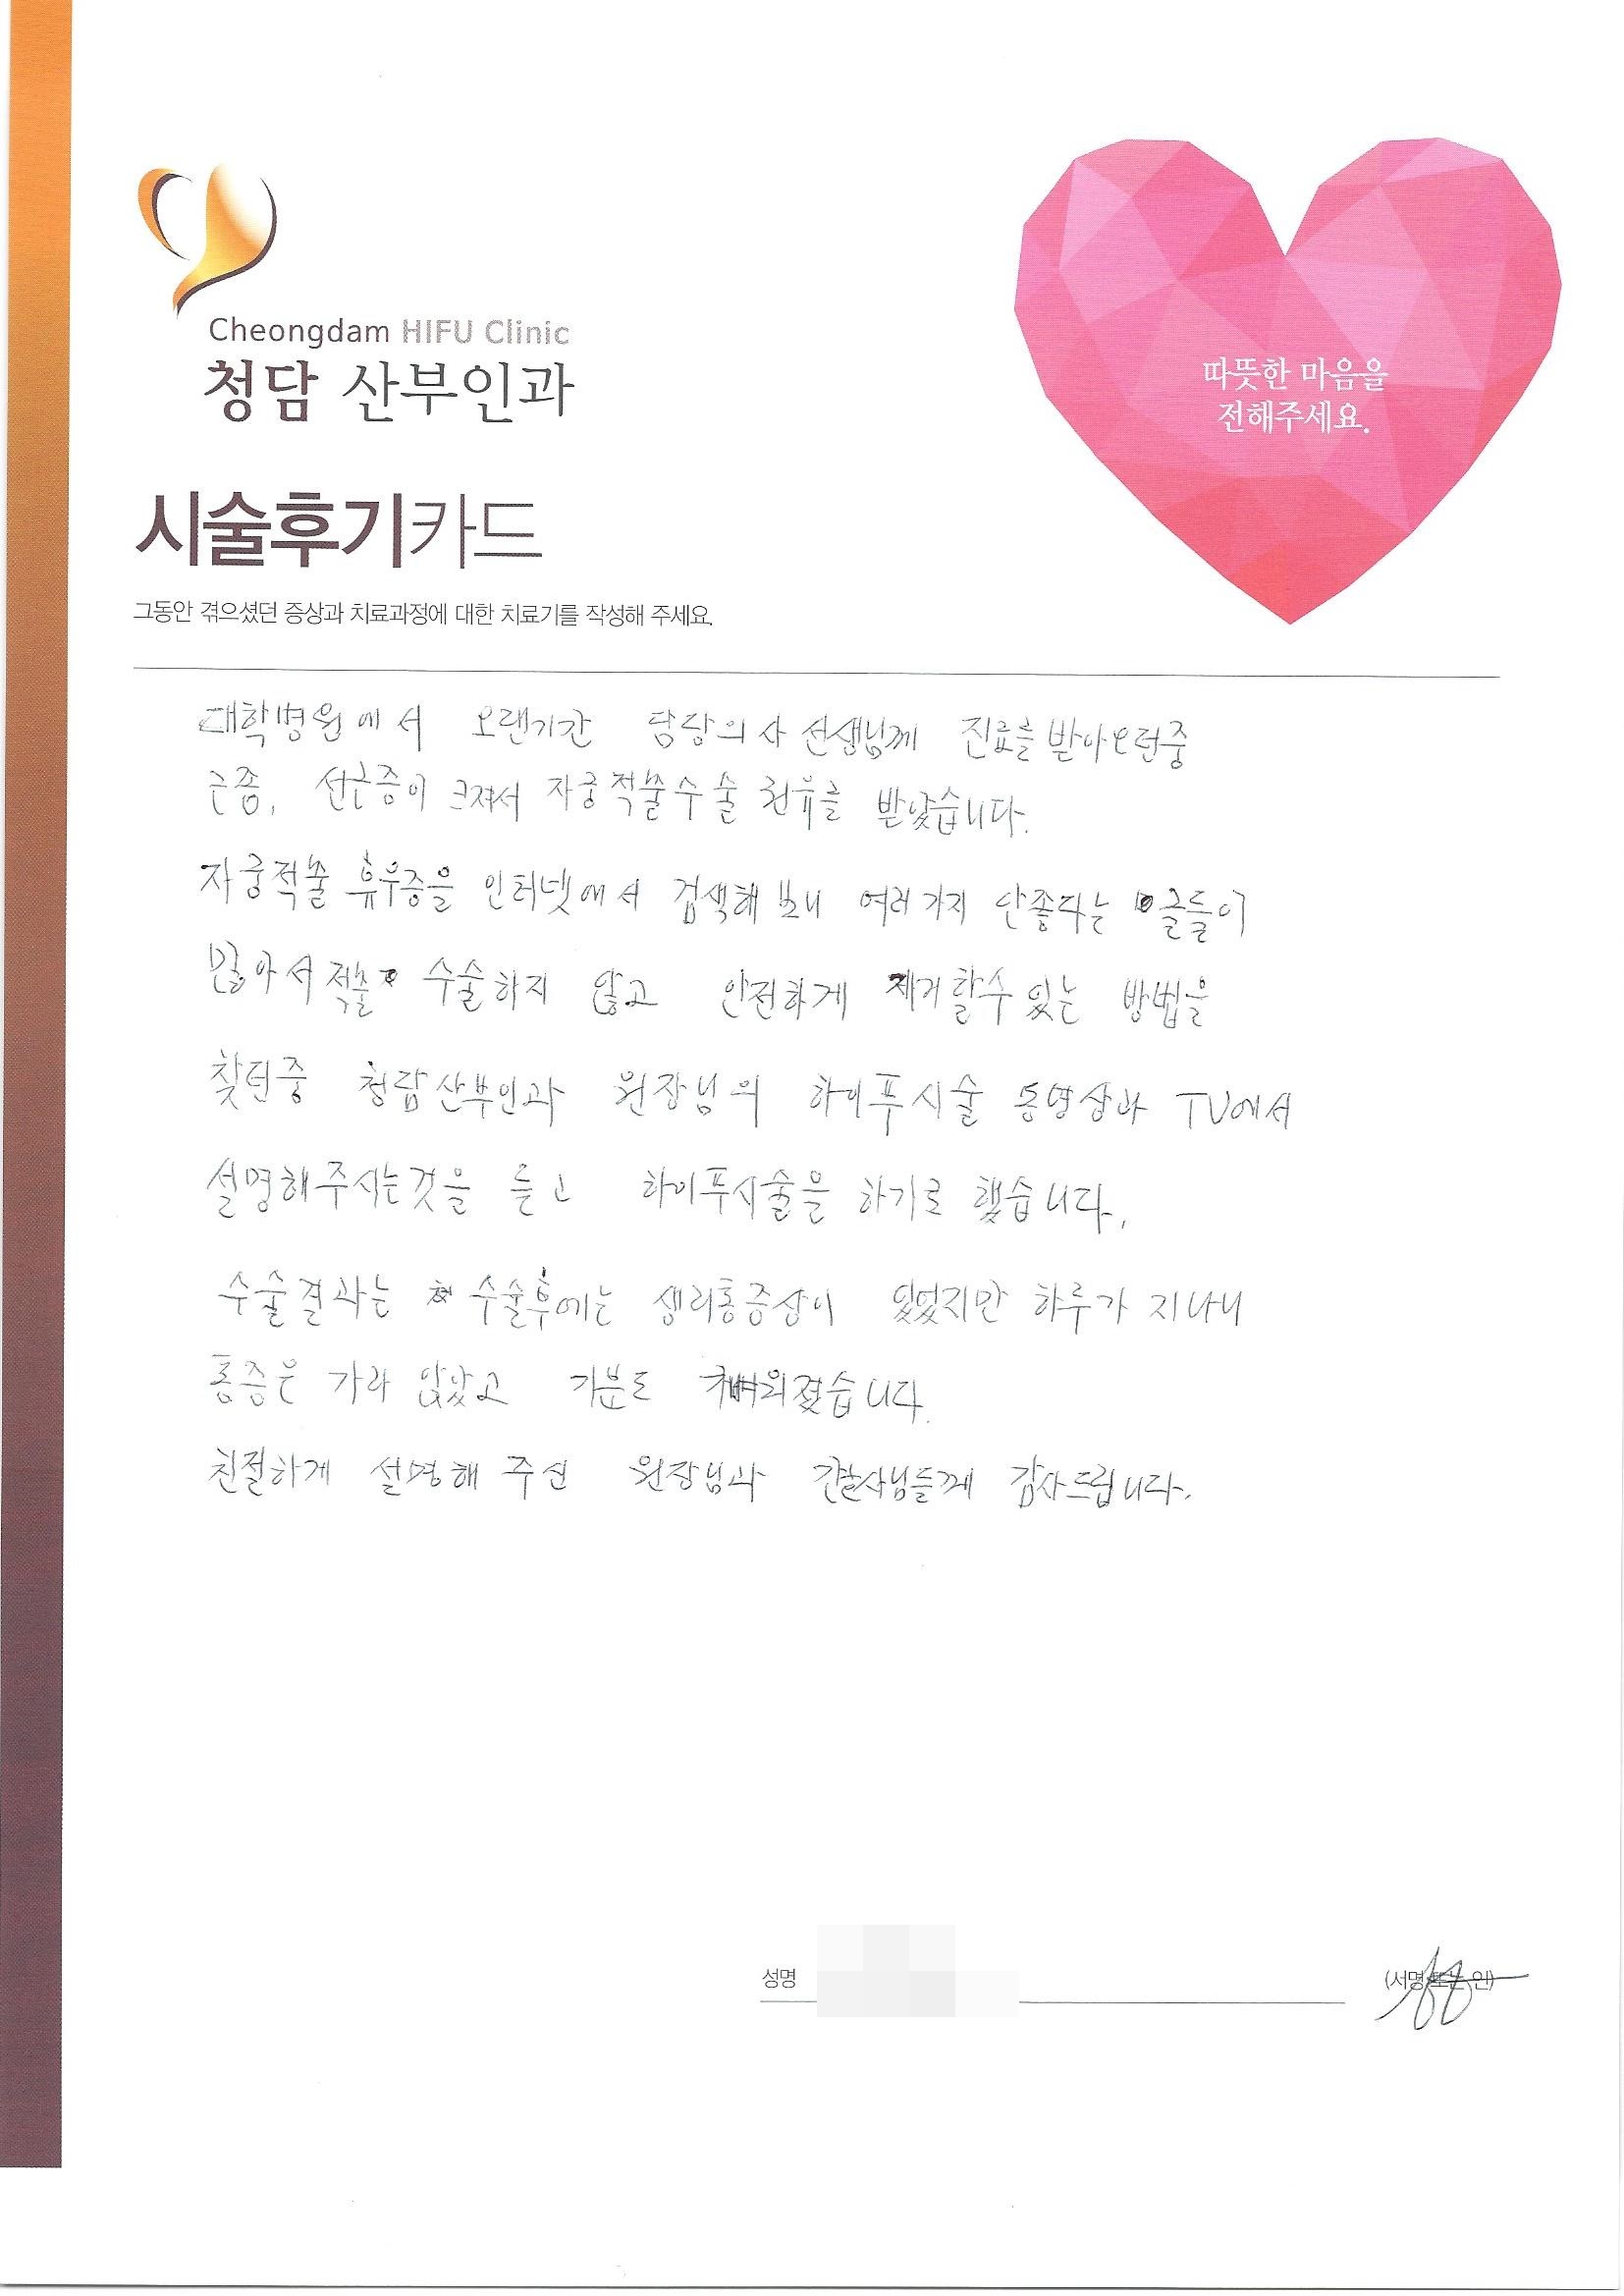 Cheongdam HIFU Clinic
청담 산부인과
따뜻한 마음을
전해주세요.
시술후기카드
그동안 겪으셨던 증상과 치료과정에 대한 치료기를 작성해 주세요.
대학병원에서 오랜기간 담당의사 선생님께 진료를 받아오던중
근종, 선근증이 크져서 자궁적출수술 권유를 받았습니다.
자궁적출 휴우증을 인터넷에서 검색해 보니 여러가지 안좋다는 글들이
많아서 적출 수술하지 않고 안전하게 제거할수 있는 방법을
찾던중 청담산부인과 원장님의 하이푸시술 동영상과 TV에서
설명해주시는것을 듣고 하이푸시술을 하기로 했습니다.
수술결과는 수술후에는 생리통증상이 있었지만 하루가 지나니
통증은 가라 앉았고 기분도
친절하게 설명해 주신 원장님과 간호사님들께 감사드립니다.
성명
(서명 또는 인)